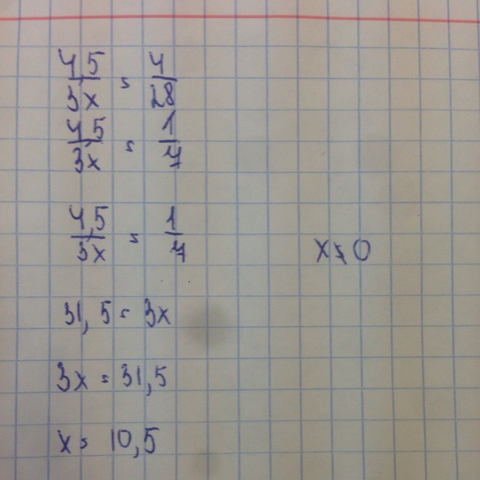 4,5/3x = 4/28
4,5/3x = 1/7
4,5/3x = 1/7
x ≠ 0
31,5 = 3x
3x = 31,5
x = 10,5